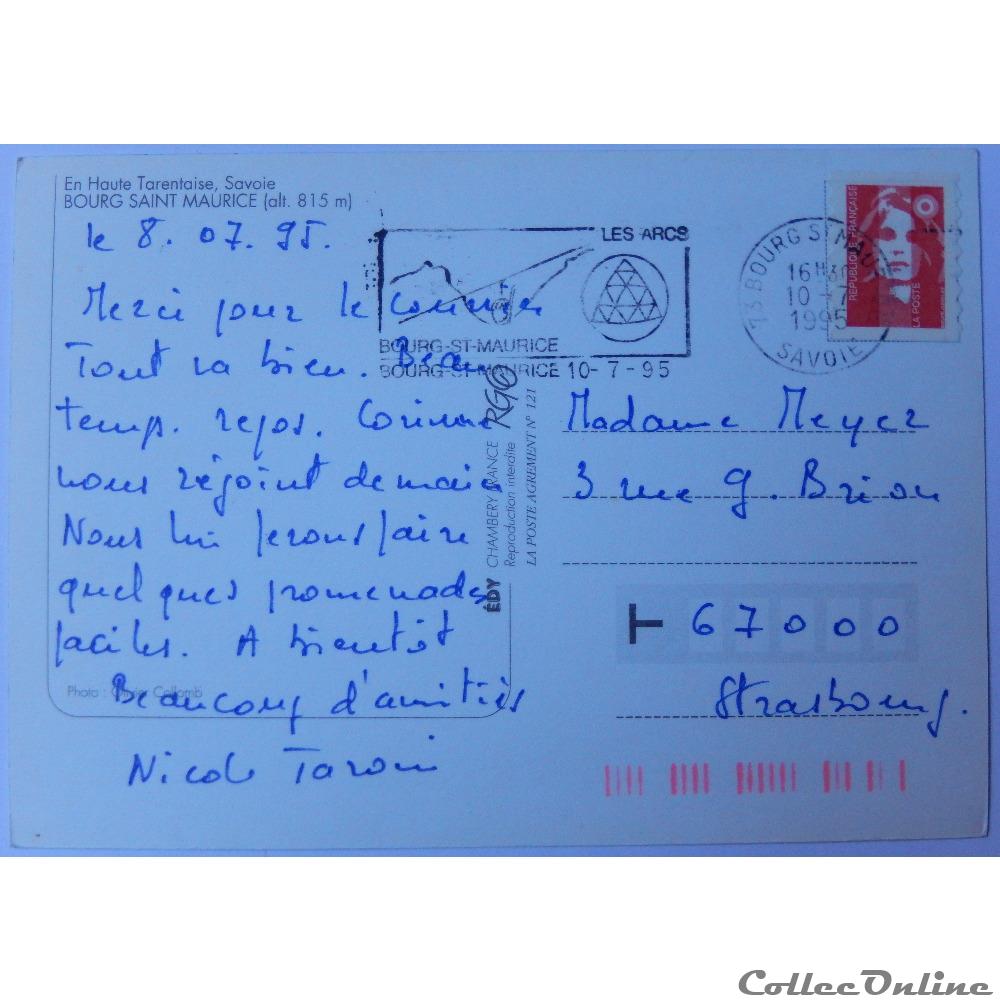 En Haute Tarentaise, Savoie
BOURG SAINT MAURICE (alt. 815 m)
le 8.07.95.
Merci pour le courrier
Tout va bien. Beau
temps. repos. Corinne
nous rejoint demain
Nous lui ferons faire
quelques promenades
faciles. A bientôt
Beaucoup d'amitiés
Nicole
Photo : Olivier Collomb
LES ARCS
BOURG-ST-MAURICE
BOURG-ST-MAURICE 10-7-95
73 BOURG ST MAURICE
16H30
10-7
1995
SAVOIE
REPUBLIQUE FRANÇAISE
LA POSTE
EDY CHAMBERY FRANCE
Reproduction interdite
LA POSTE AGREMENT N° 121
Madame Meyer
3 rue G. Brion
67000
Strasbourg.
CollecOnline